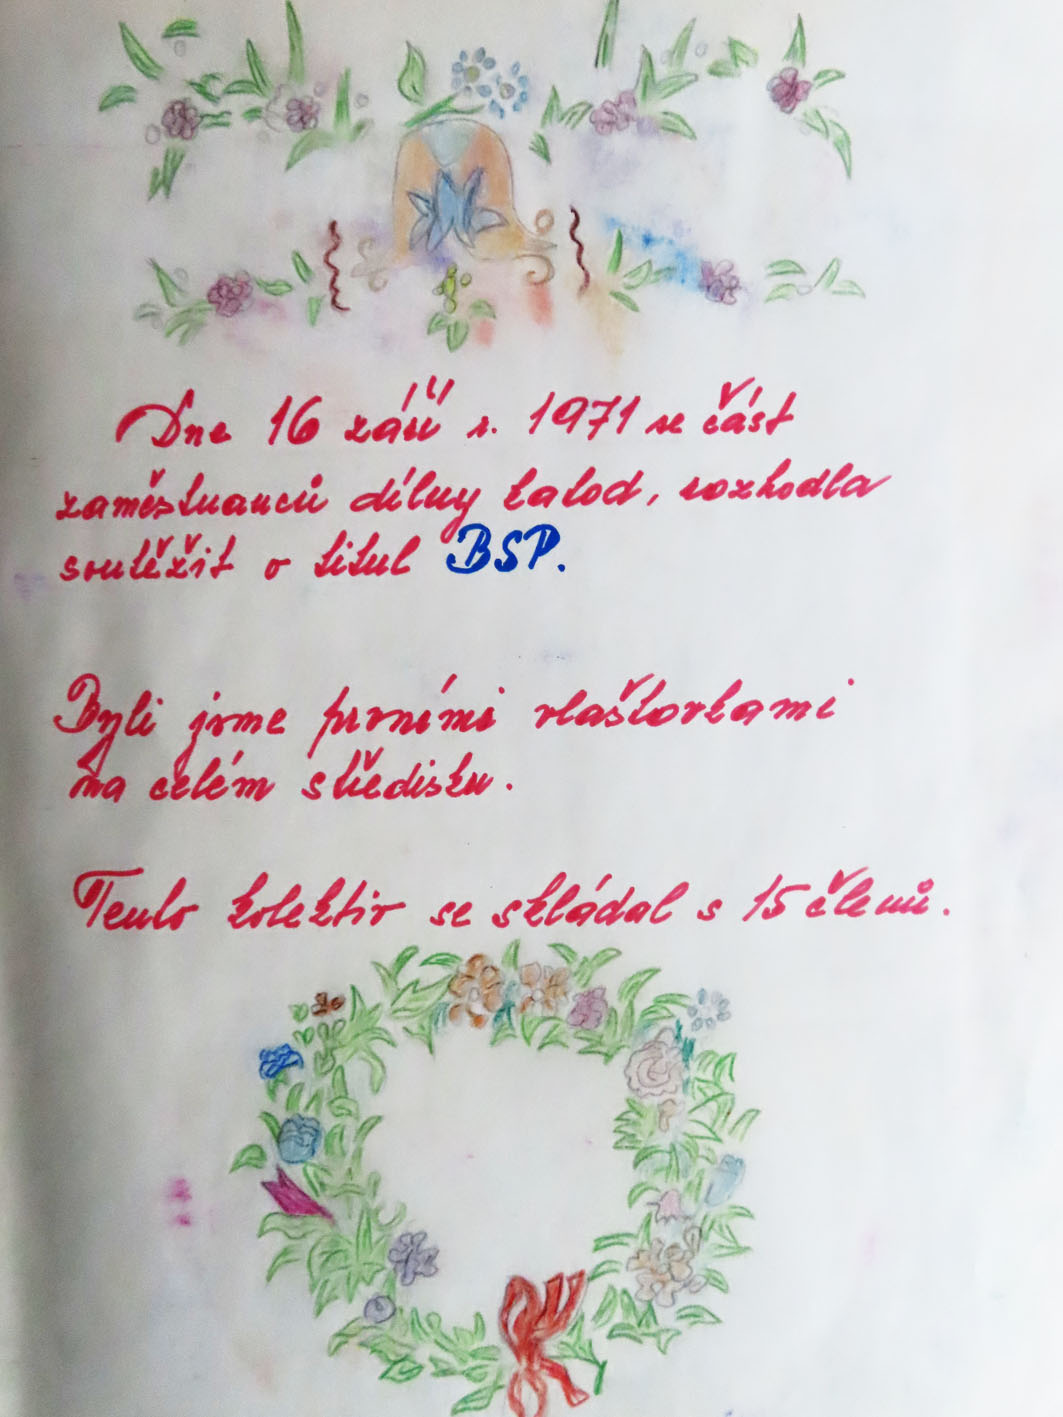 Dne 16 září r. 1971 se část
zaměstnanců dílny kalod, rozhodla
soutěžit o titul BSP.
Byli jsme prvními vlaštovkami
na celém středisku.
Tento kolektiv se skládal s 15 členů.